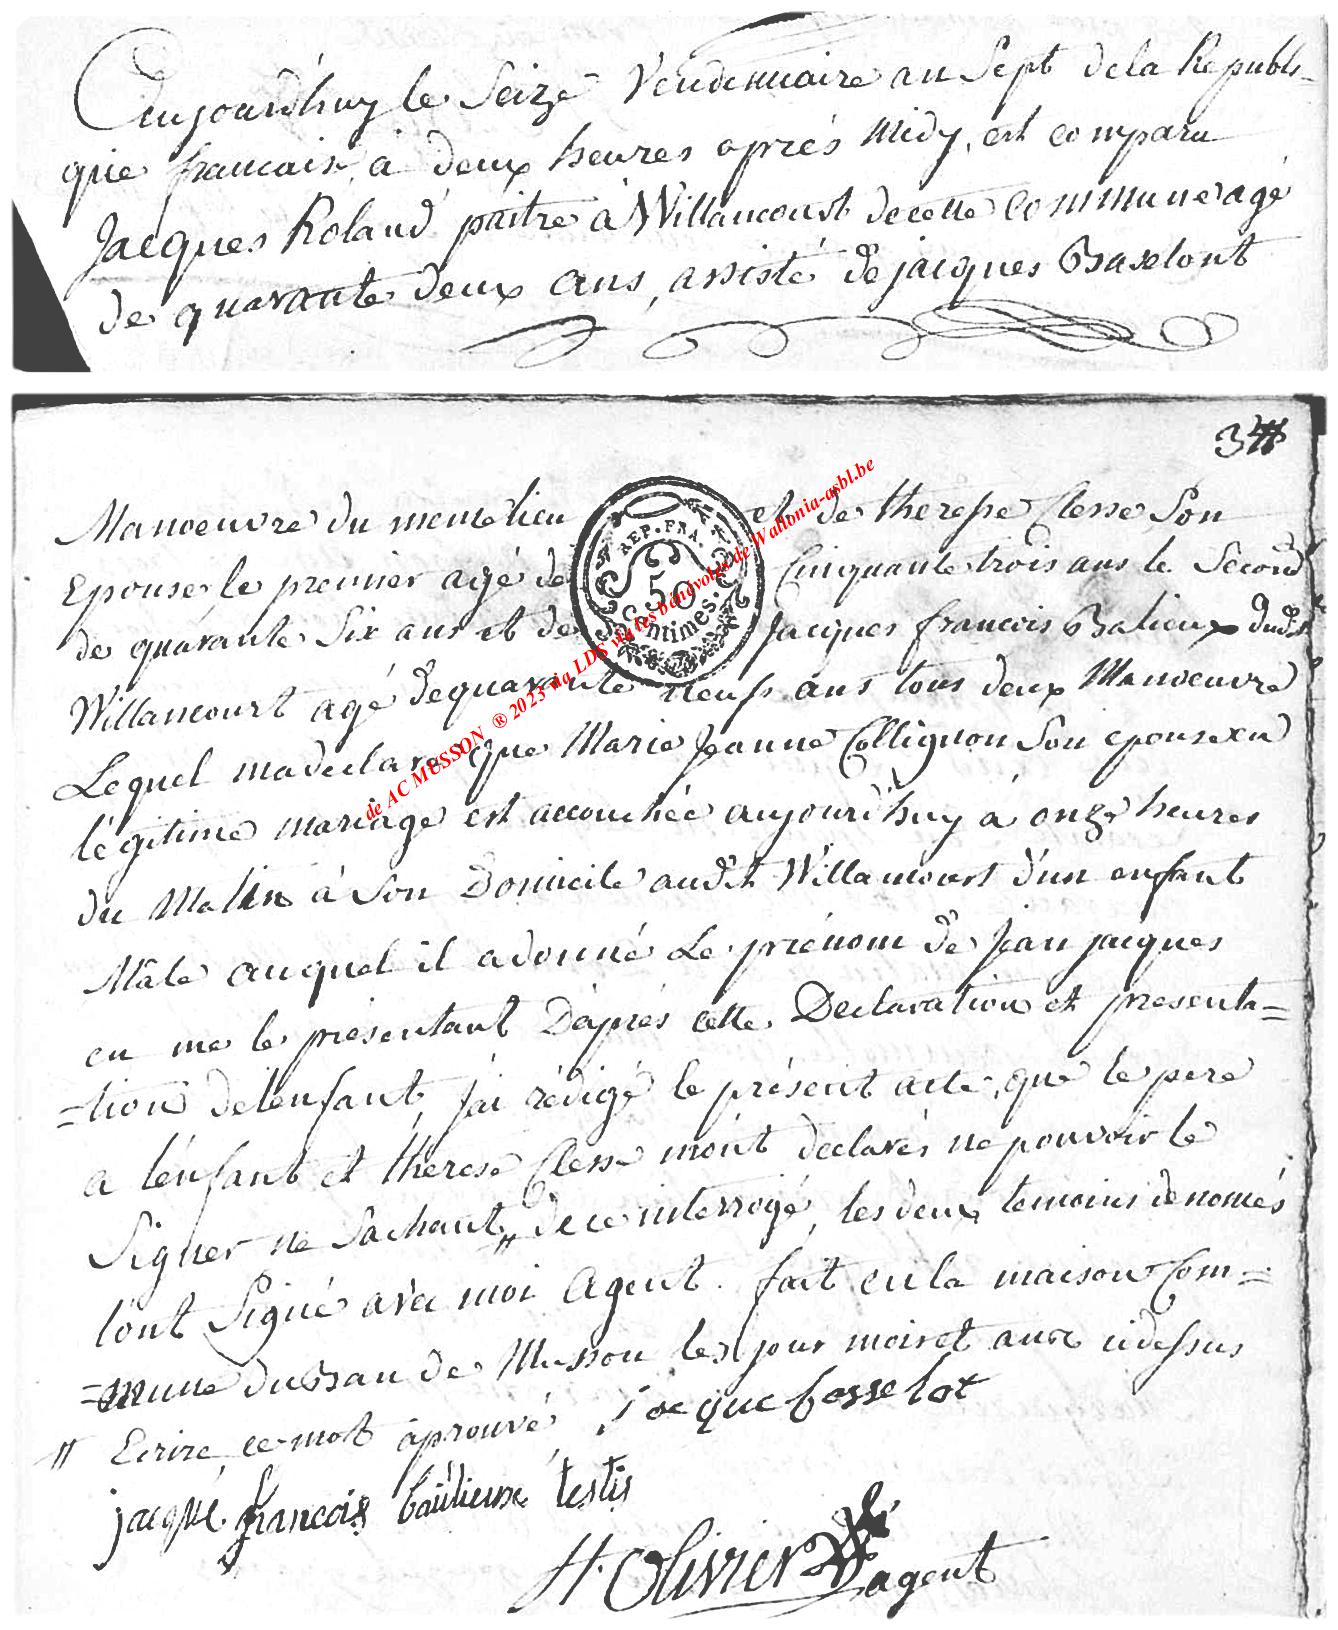 Aujourdhuy le Seize Vendemiaire an Sept de la Republi-
que francaise, à deux heures après Midy, est comparu
Jacques Roland pâitre à Willancourt de cette commune agé
de quarante deux ans, assisté de jacques Baselont
3#
Manoeuvre du meme lieu et de therese Clesse Son
Epouse le premier agé de Cinquante trois ans le Second
de quarante Six ans et de Jacques francois Balieux dudit
Willancourt agé de quarante neuf ans tous deux Manoeuvre
Lequel ma declare que Marie Jeanne Collignon Son epouse en
légitime mariage est accouchée aujourd'huy à onze heures
du Matin à Son Domicile audit Willancourt d'un enfant
Mâle auquel il a donné Le prénom de Jean jacques
en me le présentant D'après cette Declaration et presenta=
=tion de l'enfant, J'ai rédigé le présent acte, que le pere
a l'enfant et therese Clesse m'ont declarés ne pouvoir le
Signer ne Sachant # de ce interrogé, les deux temoins denomés
l'ont Signé avec moi Agent. fait en la maison Com=
=mune du Ban de Musson les jour mois et an cidessus
# Ecrire ce mot aprouvé Jacque bosselot
jacque francois baulieux testis
H. Olivier agent
REP. FRA.
50
Centimes.
de AC MUSSON ® 2023 via LDS via les bénévoles de Wallonia-asbl.be